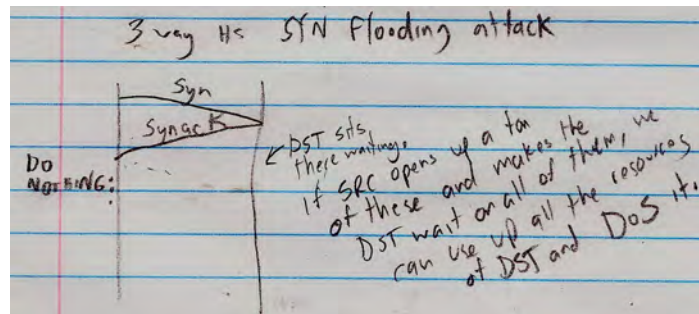 3 way Hs SYN Flooding attack
Syn
Synack
DO
NOTHING:
DST sits
there waiting.
If SRC opens up a ton
of these and makes the
DST wait on all of them, we
can use up all the resources
of DST and DoS it.